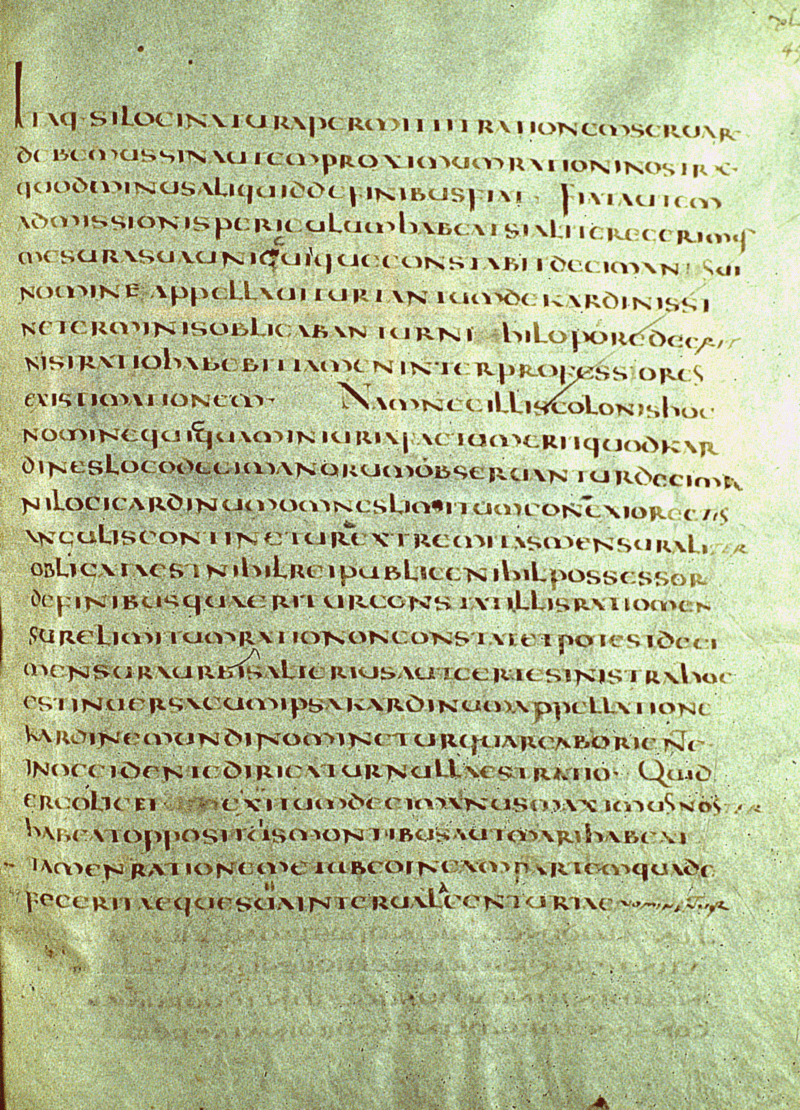 ITAQ· SILOCINATURAPERMITTITRATIONEMSERUAR
DEBEMUSSINAUTEMPROXIMUMRATIONINOSTRE·
QUODMINUSALIQUIDDEFINIBUSFIAT · FIATAUTEM
ADMISSIONISPERICULUMHABEATSIALITERECERIMUS
MESURASUAUNICUIQUECONSTABITDECIMANI SUI
NOMINE APPELLAUITURTANTUMDEKARDINISSI
NETERMINISOBLICABANTURNI HILOPOREDEE
NISIRATIOHABEBITTAMENINTERPROFESSORES
EXISTIMATIONEM· NAMNECILLISCOLONISHOC
NOMINEQUICQUAMINIURIAFACTUMERITQUODKAR
DINESLOCODECIMANORUMOBSERUANTURDECIMA
NILOCICARDINUMOMNESLIMITUMCONEXIOREC
ANGULISCONTINETUREXTREMITASMENSURALI
OBLIGATAESTNIHILREIPUBLICENIHILPOSSESSOR
DEFINIBUSQUAERITURCONSTATILLISRATIOMEN
SURELIMITUMRATIONONCONSTATETPOTESTDECI
MENSURAURBISALTERIUSAUTCERTESINISTRAHOC
ESTINUERSACUMIPSAKARDINUMAPPELLATIONE
KARDINEMUNDINOMINETURQUAREABORIENTE·
INOCCIDENTEDIRIGATURNULLAESTRATIO· QUID
ERGOLICET EXITUMDECIMANUSMAXIMUSNOS
HABEATOPPOSITCISMONTIBUSAUTMARIHABEAT
TAMENRATIONEMETABEOINEAMPARTEMQUADE
FECERITAEQUESUAINTERUALLCENTURIAE